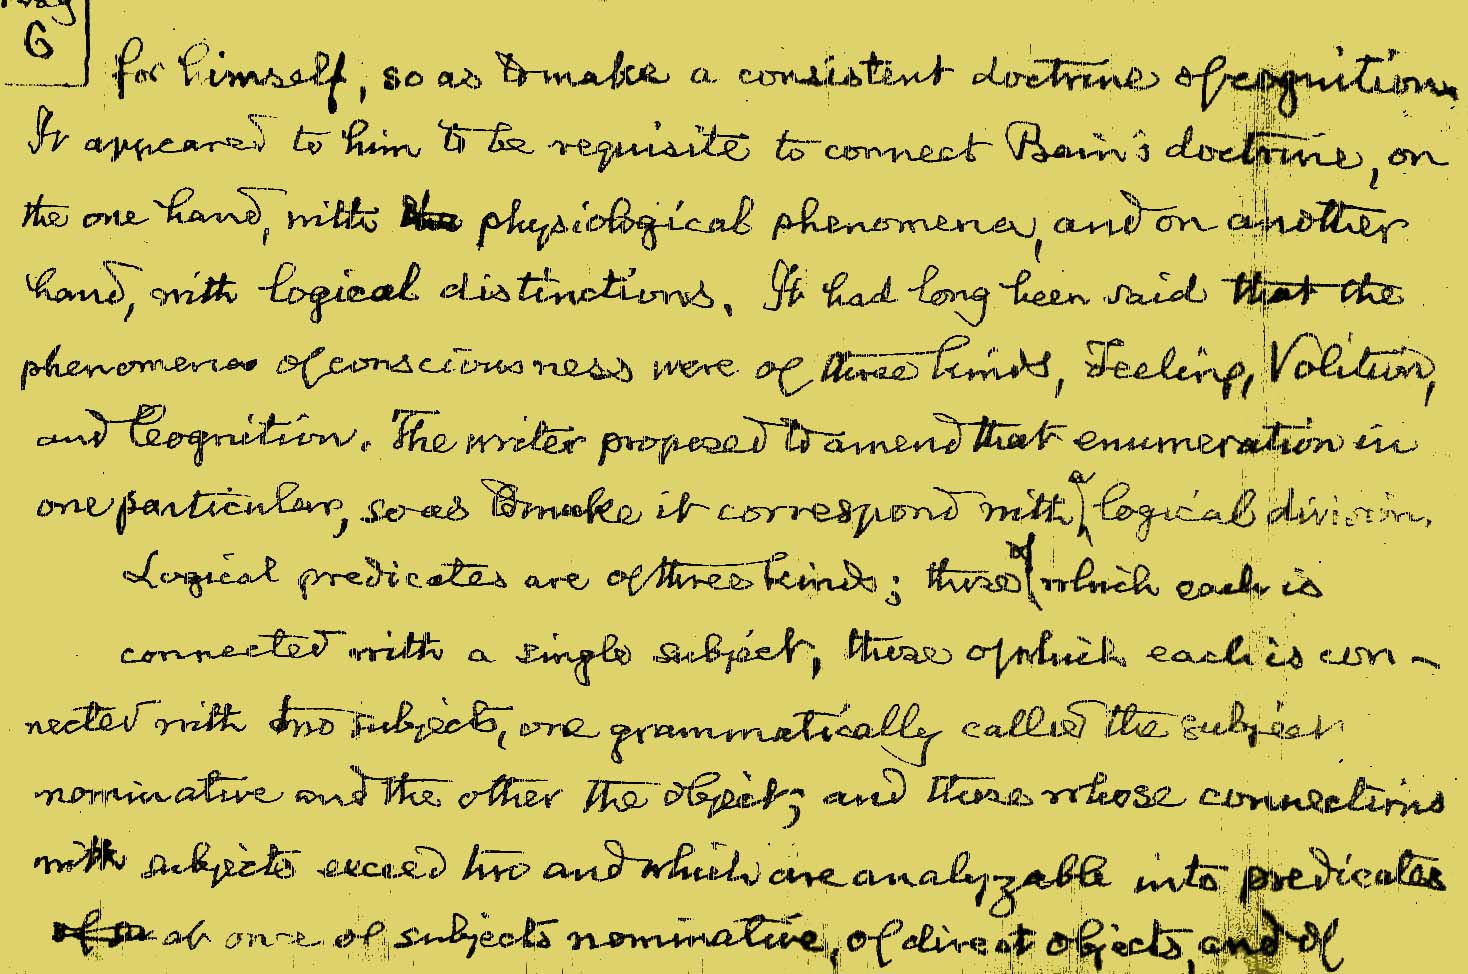 Prag
6
for himself, so as to make a consistent doctrine of cognition.
It appeared to him to be requisite to connect Bain's doctrine, on
the one hand, with the physiological phenomena, and on another
hand, with logical distinctions. It had long been said that the
phenomena of consciousness were of three kinds, Feeling, Volition,
and Cognition. The writer proposed to amend that enumeration in
one particular, so as to make it correspond with a logical division.
Logical predicates are of three kinds; those of which each is
connected with a single subject, those of which each is con-
nected with two subjects, one grammatically called the subject
nominative and the other the object; and those whose connections
with subjects exceed two and which are analyzable into predicates
at once of subjects nominative, of direct objects, and of